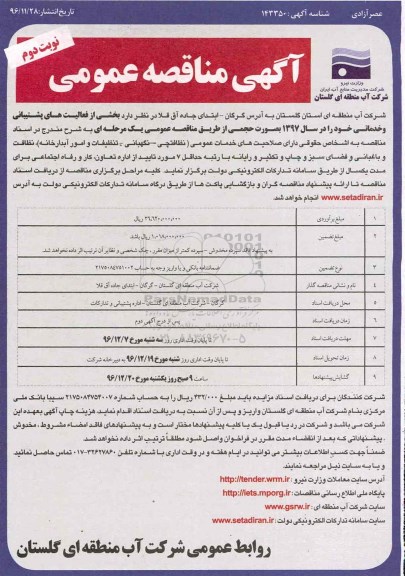 عصر آزادی شناسه آگهی: ۱۴۳۳۵۰ تاریخ انتشار: ۹۶/۱۱/۲۸
نوبت دوم
آگهی مناقصه عمومی
وزارت نیرو
شرکت مدیریت منابع آب ایران
شرکت آب منطقه ای گلستان
شرکت آب منطقه ای استان گلستان به آدرس گرگان – ابتدای جاده آق قلا در نظر دارد بخشی از فعالیت های پشتیبانی
وخدماتی خود را در سال ۱۳۹۷ بصورت حجمی از طریق مناقصه عمومی یک مرحله ای به شرح مندرج در اسناد
مناقصه به اشخاص حقوقی دارای صلاحیت های خدمات عمومی (نظافتچی – نگهبانی - تنظیفات و امور آبدارخانه)، نظافت
و باغبانی و فضای سبز و چاپ و تکثیر و رایانه با رتبه حداقل ۷ مورد تایید از اداره تعاون کار و رفاه اجتماعی برای
مدت یکسال از طریق سامانه تدارکات الکترونیکی دولت برگزار نماید. کلیه مراحل برگزاری مناقصه از دریافت اسناد
مناقصه تا ارائه پیشنهاد مناقصه گران و بازگشایی پاکت ها از طریق درگاه سامانه تدارکات الکترونیکی دولت به آدرس
www.setadiran.ir انجام خواهد شد.
۱ مبلغ برآوردی ریال
۲ مبلغ تضمین ریال باشد
به پیشنهاد فاقد سپرده مخدوش – سپرده کمتر از میزان مقرر، چک شخصی و نظایر آن ترتیب اثر داده نخواهد شد.
۳ نوع تضمین ضمانتنامه بانکی و یا واریز وجه به حساب
۴ نام و نشانی مناقصه گذار شرکت آب منطقه ای گلستان – گرگان – ابتدای جاده آق قلا
۵ محل دریافت اسناد گرگان – شرکت آب منطقه ای گلستان – اداره پشتیبانی و تدارکات
۶ زمان دریافت اسناد پس از درج آگهی دوم
۷ مهلت دریافت اسناد تا پایان وقت اداری روز سه شنبه مورخ ۹۶/۱۲/۷
۸ زمان تحویل اسناد تا پایان وقت اداری روز شنبه مورخ ۹۶/۱۲/۱۹ به دبیرخانه شرکت
۹ گشایش پیشنهادها ساعت ۹ صبح روز یکشنبه مورخ ۹۶/۱۲/۲۰
شرکت کنندگان برای دریافت اسناد مزایده باید مبلغ ۳۳۲/۰۰۰ ریال را به حساب شماره ۲۱۷۵۰۸۴۷۵۳۰۰۷ سیبا بانک ملی
مرکزی بنام شرکت آب منطقه ای گلستان واریز و پس از آن نسبت به دریافت اسناد اقدام نماید هزینه چاپ آگهی بعهده این
شرکت می باشد و شرکت در رد یا قبول یک یا کلیه پیشنهادها مختار است و به پیشنهادهای فاقد امضاء مشروط، مخدوش
، پیشنهاداتی که بعد از انقضاء مدت مقرر در فراخوان واصل شود مطلقاً ترتیب اثر داده نخواهد شد.
ضمناً جهت کسب اطلاعات بیشتر می توانید در ایام هفته و در وقت اداری با شماره تلفن ۳۲۶۲۷۸۶۰-۰۱۷ تماس حاصل نمائید
و یا به سایت نیل مراجعه نمایند
آدرس سایت معاملات وزارت نیرو: http://tender.wrm.ir
پایگاه ملی اطلاع رسانی مناقصات: http://iets.mporg.ir
سایت شرکت آب منطقه ای: www.gsrw.ir
سایت سامانه تدارکات الکترونیکی دولت: www.setadiran.ir
روابط عمومی شرکت آب منطقه ای گلستان